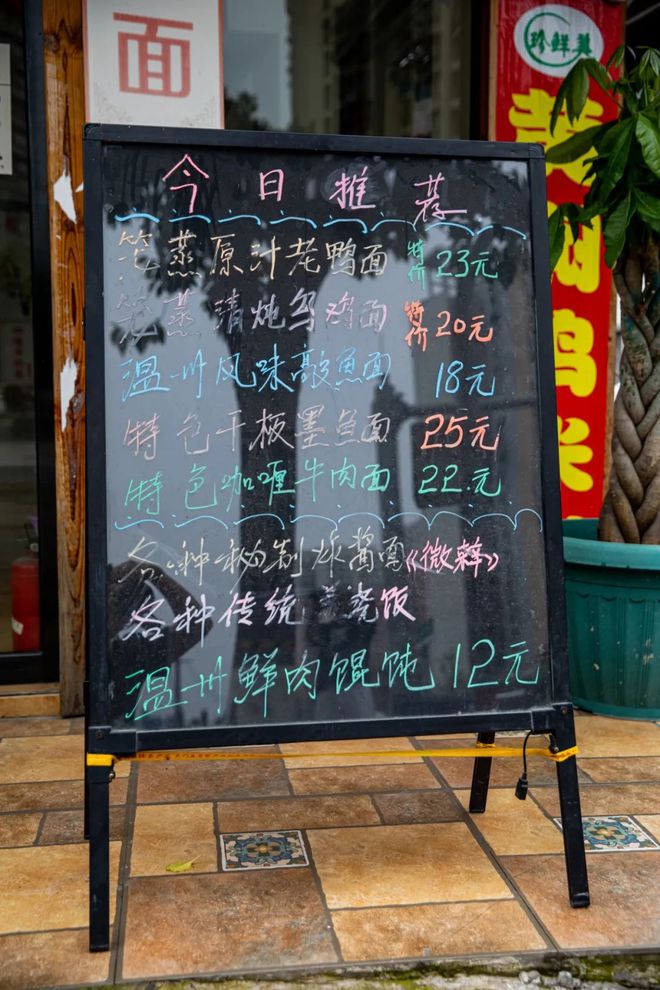 面
珍鲜羹
今日推荐
笼蒸原汁老鸭面 特价 23元
笼蒸清炖乌鸡面 特价 20元
温州风味敲魚面 18元
特色干板墨鱼面 25元
特色咖喱牛肉面 22元
各种秘制炸酱面《微辣》
各种传统盖浇饭
温州鲜肉馄饨 12元
黄焖鸡米